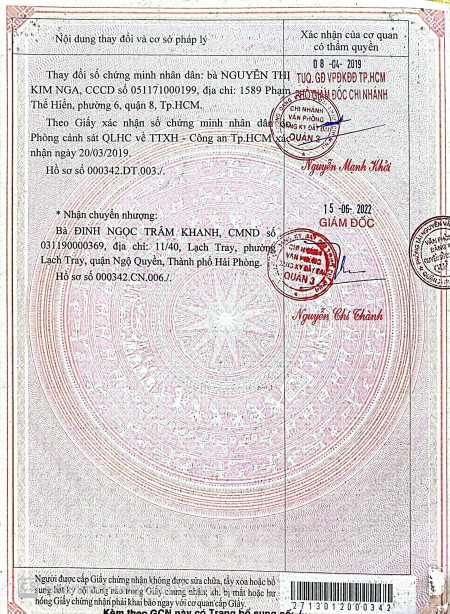 Nội dung thay đổi và cơ sở pháp lý
Xác nhận của cơ quan
có thẩm quyền
Thay đổi số chứng minh nhân dân: bà NGUYỄN THỊ
KIM NGA, CCCD số 051171000199, địa chỉ: 1589 Phạm
Thế Hiển, phường 6, quận 8, Tp.HCM.
Theo Giấy xác nhận số chứng minh nhân dân do
Phòng cảnh sát QLHC về TTXH - Công an Tp.HCM xác
nhận ngày 20/03/2019.
Hồ sơ số 000342.DT.003./.
08 -04- 2019
TUQ. GĐ VPĐKĐĐ TP.HCM
PHÓ GIÁM ĐỐC CHI NHÁNH
CHI NHÁNH
VĂN PHÒNG
ĐĂNG KÝ ĐẤT ĐAI
QUẬN 3
Nguyễn Mạnh Khởi
* Nhận chuyển nhượng:
Bà ĐINH NGỌC TRÂM KHANH, CMND số
031190000369, địa chỉ: 11/40, Lạch Tray, phường
Lạch Tray, quận Ngô Quyền, Thành phố Hải Phòng.
Hồ sơ số 000342.CN.006./.
15 -06- 2022
GIÁM ĐỐC
CHI NHÁNH
VĂN PHÒNG
ĐĂNG KÝ ĐẤT ĐAI
QUẬN 3
Nguyễn Chí Thành
VĂN PHÒNG
Người được cấp Giấy chứng nhận không được sửa chữa, tẩy xóa hoặc bổ
sung bất kỳ nội dung nào trong Giấy chứng nhận; khi bị mất hoặc hư
hỏng Giấy chứng nhận phải khai báo ngay với cơ quan cấp Giấy.
2713012000342
Kèm theo GCN này có Trang bổ sung